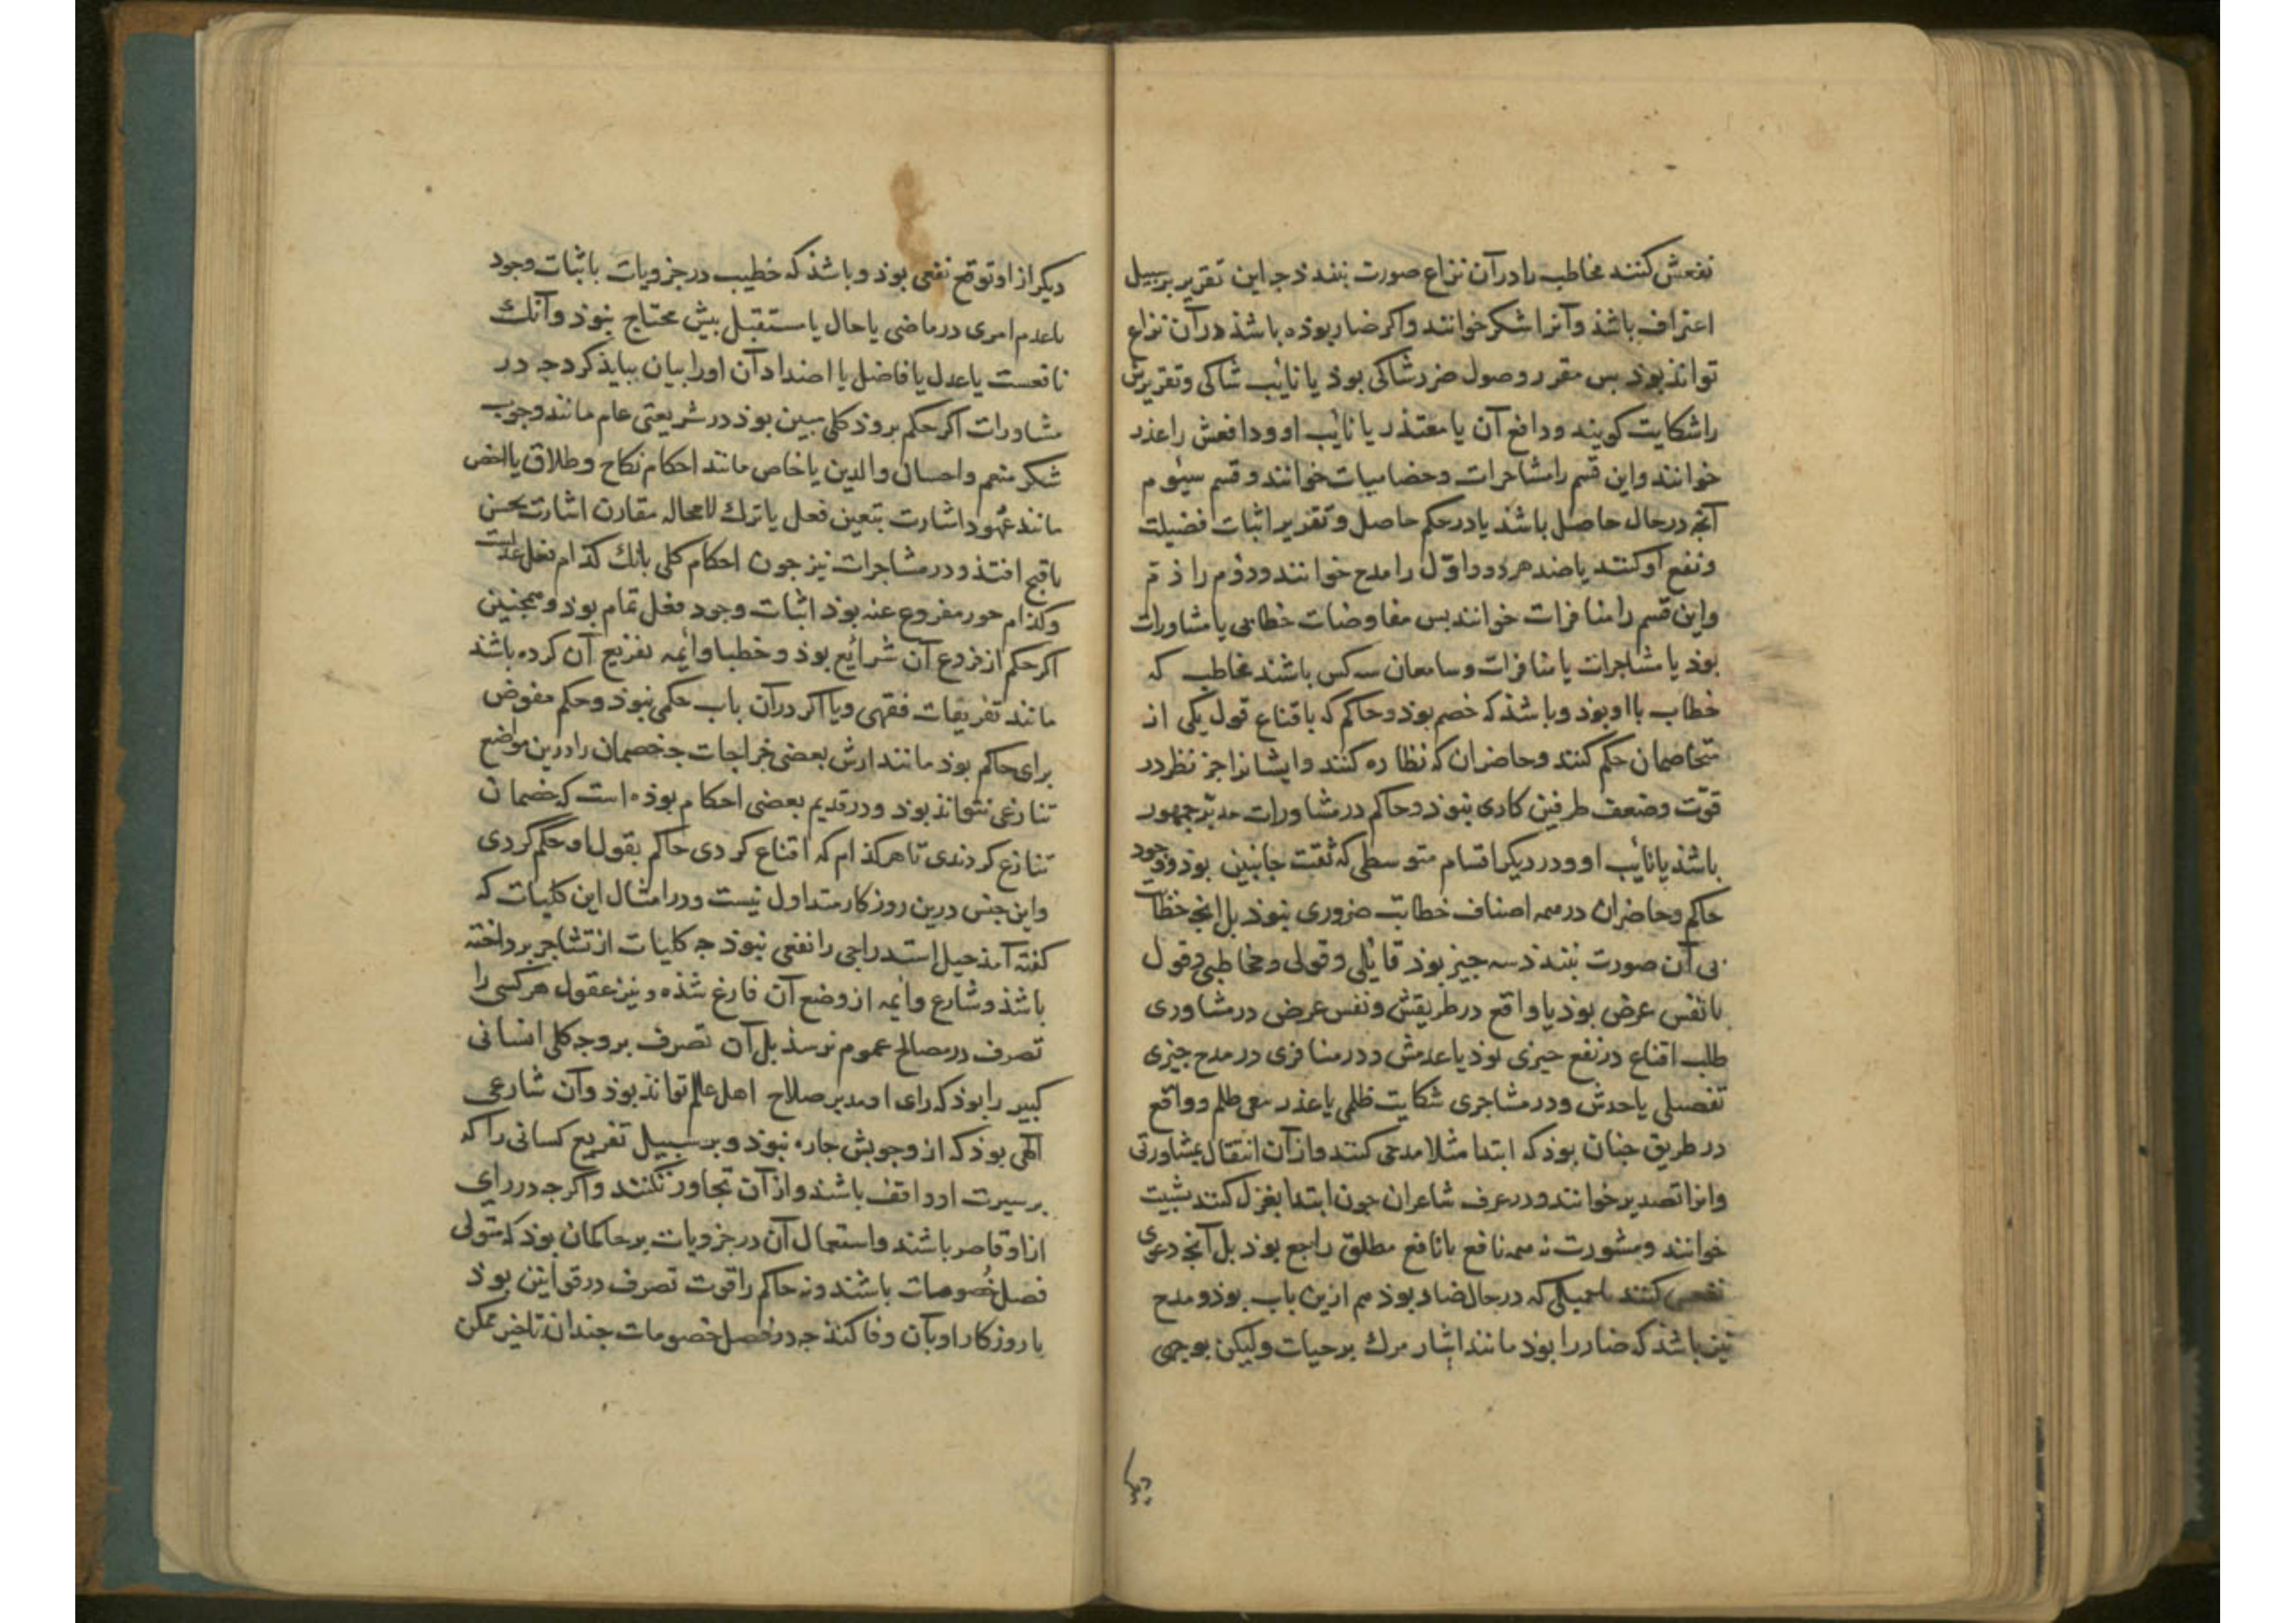 نفعش کنند مخاطب را در آن نزاع صورت نبندذ جه این تقریر بر سبیل
اعتراف باشذ وآنرا شکر خوانند واکر ضار بوذه باشذ در آن نزاع
تواند بوذ بس مقرر وصول ضرر شاکی بوذ یا نایب شاکی وتقریرش
را شکایت کویند ودافع آن یا معتذر یا نایب او ودافعش را عذر
خوانند واین قسم را مشاجرات وخصامیات خوانند وقسم سیوم
آنجه در حال حاصل باشذ یا در حکم حاصل وتقدیر اثبات فضیلت
ونفع او کنند یا ضد هر دو واول را مدح خوانند ودوم را ذم
واین قسم را منافرات خوانند بس مفاوضات خطابی یا مشاورات
بوذ یا مشاجرات یا منافرات وسامعان سه کس باشند مخاطب که
خطاب با او بوذ وباشذ که خصم بوذ وحاکم که باقناع قول یکی از
متخاصمان حکم کنند وحاضران که نظاره کنند وایشانرا جز نظر در
قوت وضعف طرفین کاری نبوذ وحاکم در مشاورات مدبر جمهور
باشذ یا نایب او ودر دیکر اقسام متوسطی که ثقت جانبین بوذ ووجود
حاکم وحاضران در همه اصناف خطابت ضروری نبوذ بل انجه خطابت
بی آن صورت نبندذ سه جیز بوذ قایلی وقولی ومخاطبی وقول
یا نفس عرض بوذ یا واقع در طریقش ونفس عرض در مشاوری
طلب اقناع در نفع جیزی بوذ یا عدمش ودر منافری در مدح جیزی
تفصیلی یا حدش ودر مشاجری شکایت ظلمی یا عذر نفی ظلم وواقع
در طریق جنان بوذ که ابتدا مثلا مدحی کنند واز آن انتقال بمشاورتی
وانرا تصدیر خوانند ودر عرف شاعران جون ابتدا بغزل کنند تشبیب
خوانند ومشورت نه همه نافع یا نافع مطلق راجع بوذ بل آنجه دعوی
نفعش کنند که در حال ضار بوذ هم ازین باب بوذ ومدح
نیز باشذ که ضار را بوذ مانند ایثار مرک بر حیات ولیکن بوجهی
دیکر
دیکر از او توقع نفعی بوذ وباشذ که خطیب در جزویات باثبات وجود
یا عدم امری در ماضی یا حال یا مستقبل بیش محتاج نبوذ وآنک
نافعست یا عدل یا فاضل یا اضداد آن اورا بیان بباید کرد جه در
مشاورات اکر حکم بروذ کلی مبین بوذ در شریعتی عام مانند وجوب
شکر منعم واحسان والدین یا خاص مانند احکام نکاح وطلاق یا اخص
مانند عهود اشارت بتعین فعل یا ترک لامحاله مقارن اشارت بحسن
یا قبح افتذ ودر مشاجرات نیز جون احکام کلی بانک کذام فعل عدلست
وکذام جور مفروع عنه بوذ اثبات وجود فعل تمام بوذ وهمجنین
اکر حکم از فروع آن شرایع بوذ وخطبا وائمه تفریع آن کرده باشذ
مانند تفریعات فقهی ویا اکر در آن باب حکمی نبوذ وحکم مفوض
برای حاکم بوذ مانند ارش بعضی جراحات جه خصمان را درین مواضع
تنازعی نتواند بوذ ودر قدیم بعضی احکام بوذه است که خصمان
تنازع کردندی تا هر کذام که اقناع کردی حاکم بقول او حکم کردی
واین جنس درین روزکار متداول نیست ودر امثال این کلیات که
کفته آمذ حیل استدراجی را نفعی نبوذ جه کلیات از تشاجر برداخته
باشذ وشارع وائمه از وضع آن فارغ شذه ونیز عقول هر کسی را
تصرف در مصالح عموم نرسذ بل آن تصرف بر وجه کلی انسانی
کبیر را بوذ که رای او مدبر صلاح اهل عالم تواند بوذ وآن شارعی
الهی بوذ که از وجوبش جاره نبوذ وبر سبیل تفریع کسانی را که
بر سیرت او واقف باشند واز آن تجاوز نکنند واکرجه در رای
از او قاصر باشند واستعمال آن در جزویات بر حاکمان بوذ که متولی
فصل خصومات باشند ونه حاکم را قوت تصرف در قوانین بوذ
یا روزکار او بآن وفا کنذ جه در فصل خصومات جندان تاخیر ممکن